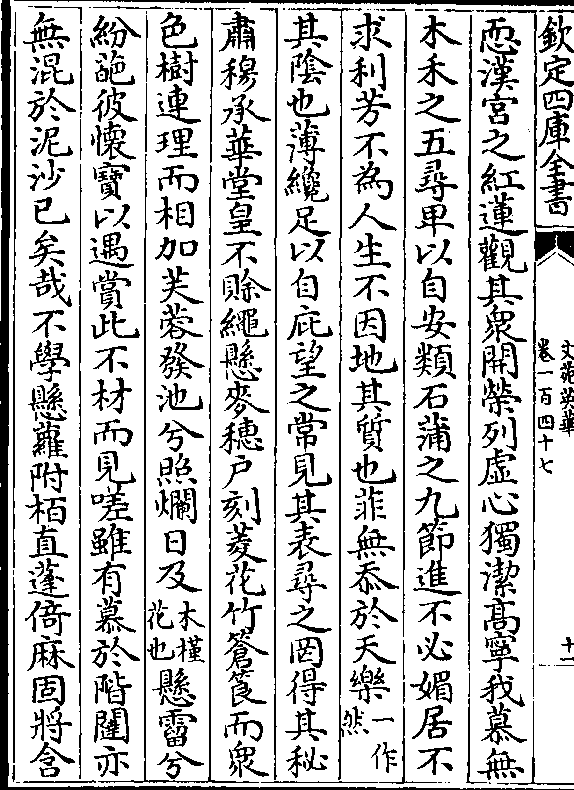 欽定四庫全書
文苑英華
卷一百四十七
十一
恧漢宫之紅蓮觀其衆開榮列虚心獨潔高寧我慕無
木禾之五尋卑以自安類石蒲之九節進不必媚居不
求利芳不為人生不因地其質也菲無忝於天樂一作然
其陰也薄纔足以自庇望之常見其表尋之罔得其秘
肅穆承華堂皇不賒繩懸麥穗户刻菱花竹篬筤而衆
色樹連理而相加芙蓉發池兮照爛日及木槿花也懸霤兮
紛葩彼懷寶以遇賞此不材而見嗟雖有慕於階闥亦
無混於泥沙已矣哉不學懸蘿附栢直蓬倚麻固將含